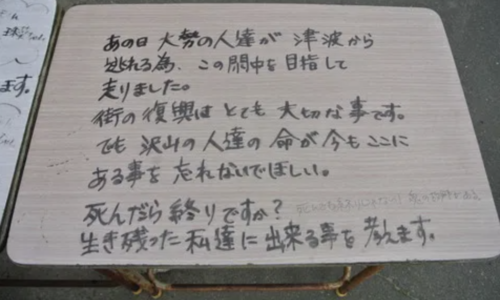 あの日 大勢の人達が 津波から
逃れる為、この閖中を目指して
走りました。
街の復興は とても 大切な事です。
でも 沢山の人達の 命が 今も ここに
ある事を 忘れないでほしい。
死んだら 終りですか?
生き残った 私達に 出来る事を 考えます。
ます。